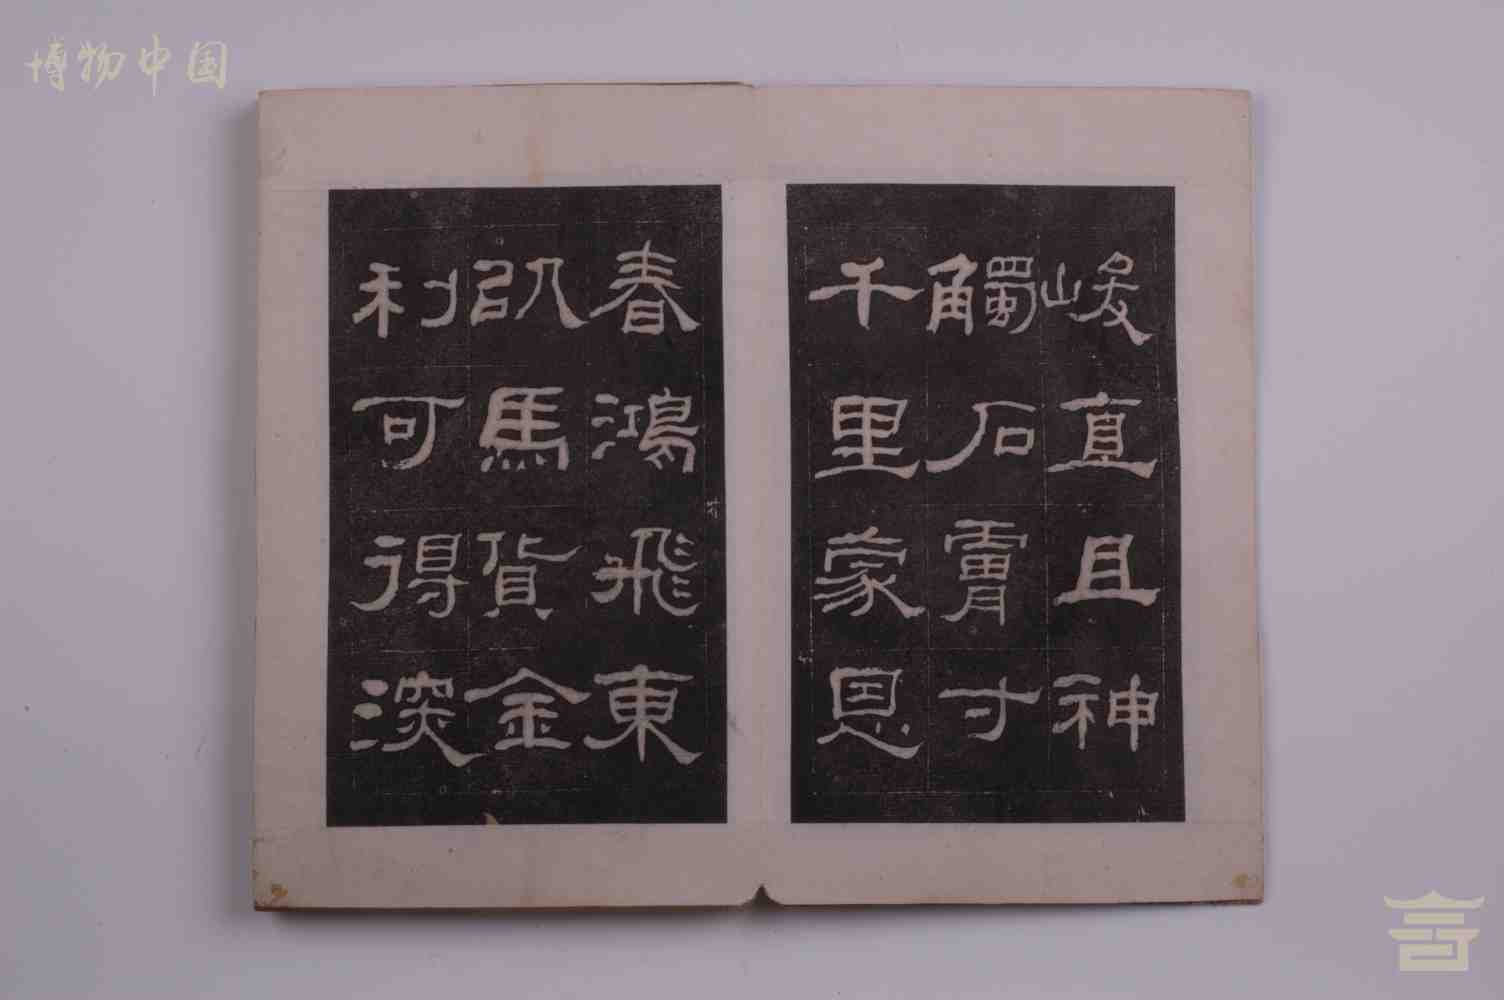 博物中国
峻直且神
觸石膚寸
千里蒙恩
春鴻飛東
以馬貨金
利可得深